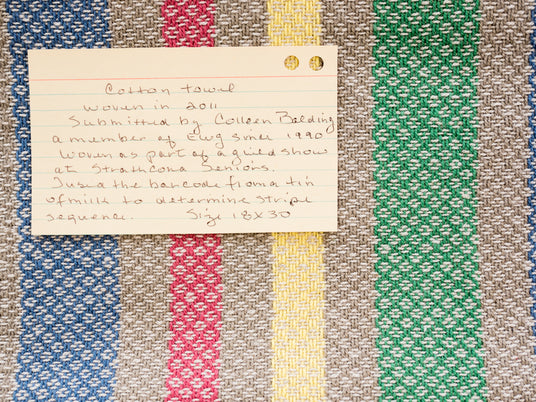 Cotton towel
woven in 2011
Submitted by Colleen Balding
a member of EWG since 1990
Woven as part of a guild show
at Strathcona Seniors.
I used the barcode from a tin
of milk to determine stripe
sequence. Size 18x30